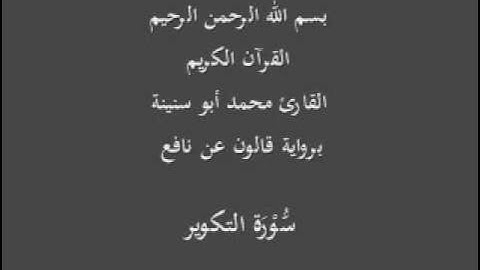 بسم الله الرحمن الرحيم
القرآن الكريم
القارئ محمد أبو سنينة
برواية قالون عن نافع
سُّوْرَة التكوير